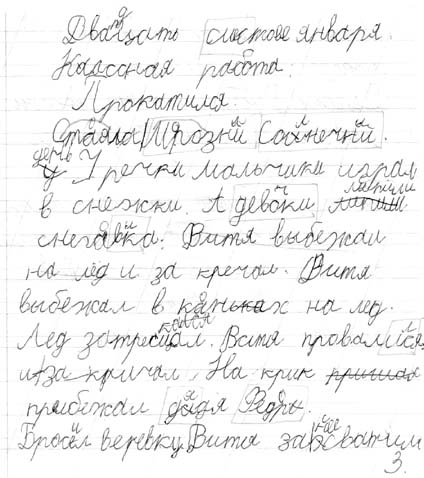 Двацать шестое января.
Классная работа.
Прокатился.
Стаяла Мрозный Сонечный
день У речки мальчики играл
в снежки. А девочки липили
снегавика. Витя выбежал
на лёд и за кречал. Витя
выбежал в каньках на лед.
Лед затрещал. Витя провалился
и за кричал. На крик
прибежал дядя Федя.
Бросил веревку. Витя захватил
3.